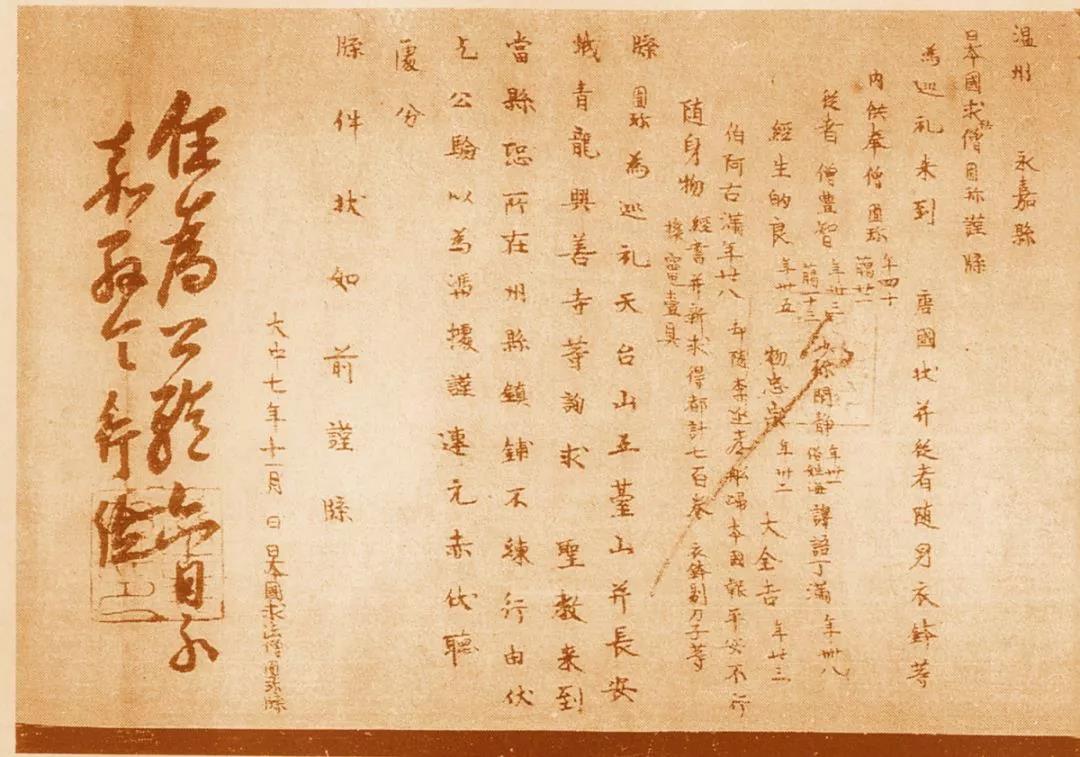 温州 永嘉縣
日本國求法僧圓珎謹牒
為巡礼来到 唐國状并従者随身衣鉢等
内供奉僧圓珎 年四十 臈廿一
従者僧豊智 年卅三 臈一十三 沙弥閑静 年卅一 俗姓海 譯語丁滿 年卌八
經生的良 年卅五 物忠宗 年卅二 大全吉 年廿三
伯阿古滿年廿八 却随李 舩歸本國報平安不行
随身物 經書并新求得都計七百巻 衣鉢剔刀子等
壹具
牒 圓珎為巡礼天台山五薹山并長安
城青龍興善寺等詢求 聖教来到
當縣恐所在州縣鎮鋪不練行由伏
乞公驗以為憑據謹連元赤伏聴
處分
牒件状如前謹牒
大中七年十一月 日日本國求法僧圓珎牒
任為公驗六日永
嘉縣令